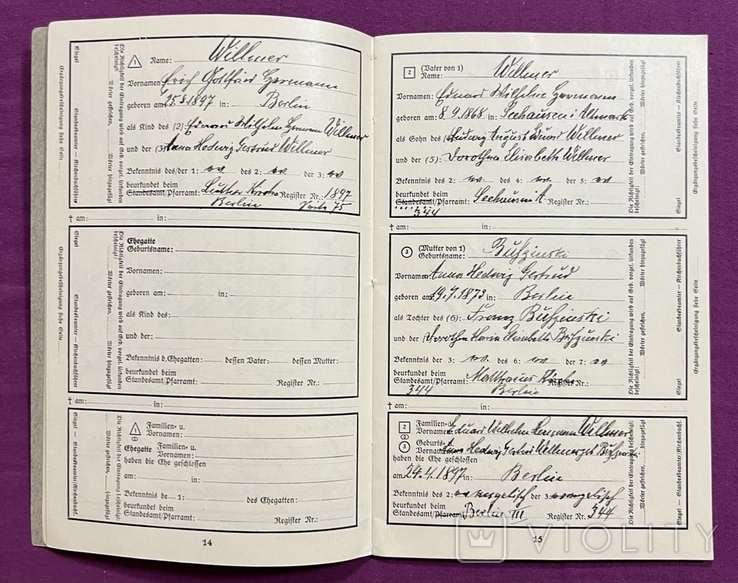 1 Name: Willmer
Vornamen: Erich Gottfried Hermann
geboren am 25.3.1897 in: Berlin
als Kind des (2) Eduard Wilhelm Hermann Willmer
und der (3) Anna Hedwig Gertrud Willmer
Bekenntnis des/der 1: ev. des 2: ev. der 3: ev.
beurkundet beim
Standesamt/Pfarramt: Register Nr.: 1897
Berlin Seite 75
† am: in:
Ehegatte
Geburtsname:
Vornamen:
geboren am: in:
als Kind des:
und der:
Bekenntnis d. Ehegatten: dessen Vater: dessen Mutter:
beurkundet beim
Standesamt/Pfarramt: Register Nr.:
† am: in:
1 Familien- u.
Vornamen:
Ehegatte Familien- u.
Vornamen:
haben die Ehe geschlossen
am: in:
Bekenntnis de - 1: des Ehegatten:
beurkundet beim
Standesamt/Pfarramt: Register Nr.:
14
Siegel
Standesbeamter — Kirchenbuchführer
Ergänzungsbescheinigung siehe Seite
Die Richtigkeit der Eintragung wird auf Grd. vorgel. Urkunden bescheinigt:
Wörter gestrichen, Wörter hinzugefügt
2 (Vater von 1)
Name: Willmer
Vornamen: Eduard Wilhelm Hermann
geboren am 8.9.1868 in: Seehausen i/Altmark
als Sohn des (4) Ludwig August Eduard Willmer
und der (5): Dorothea Elisabeth Willmer
Bekenntnis des 2: ev. des 4: ev. der 5: ev.
beurkundet beim
Standesamt/Pfarramt: Seehausen i/A Register Nr.:
344
† am: in:
3 (Mutter von 1)
Geburtsname:
Vornamen: Anna Hedwig Gertrud
geboren am 29.7.1873 in: Berlin
als Tochter des (6): Franz
und der Dorothea Maria Elisabeth
Bekenntnis der 3: ev. des 6: ev. der 7: ev
beurkundet beim
Standesamt/Pfarramt: Matthäus Kirche Register Nr.:
344 Berlin
† am: in:
2 Familien- u.
Vornamen: Eduard Wilhelm Hermann Willmer
3 Geburts- u.
Vornamen: Anna Hedwig Gertrud Willmer geb.
haben die Ehe geschlossen
am 24.4.1897 in: Berlin
Bekenntnis des 2: evangelisch der 3: evangelisch
beurkundet beim
Standesamt/Pfarramt: Berlin III Register Nr. 344
15
Siegel
Standesbeamter — Kirchenbuchführer
Ergänzungsbescheinigung siehe Seite
VIOLITY